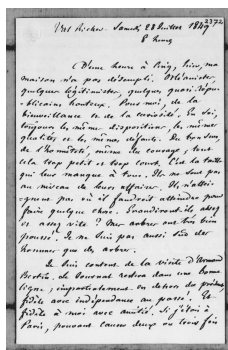 2372
Val Richer. Samedi 28 Juillet 1849
8 heures
D'une heure à cinq, hier, ma
maison n'a pas désempli. Orléanistes,
quelques légitimistes, quelques quasi-répu-
blicains honteux. Pour moi, de la
bienveillance et de la curiosité. En soi,
toujours les même dispositions, les mêmes
qualités et les mêmes défauts. Du bon sens,
de l'honnêteté, même du courage, tout
cela trop petit et trop court. C'est la taille
qui leur manque à tous. Ils ne sont pas
au niveau de leurs affaires. Ils n'attei-
gnent pas où il faudroit atteindre pour
faire quelque chose. Grandiront-ils assez
et assez vite ? Mes arbres ont très bien
poussé. Je ne suis pas aussi sûr des
hommes que des arbres.
Je suis content de la visite d'Armand
Bertin. Le Journal restera dans une bonne
ligne ; impartialement en dehors du présent,
fidèle avec indépendance au passé. Et
fidèle à moi avec amitié. Si j'étois à
Paris, pouvant causer deux ou trois fois